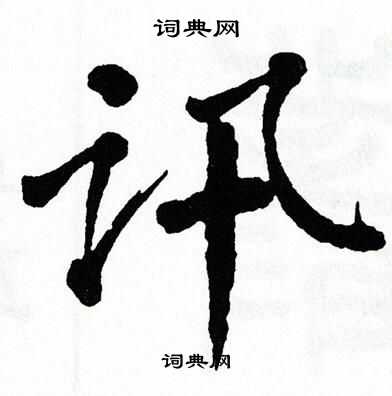 词典网
讯
词典网